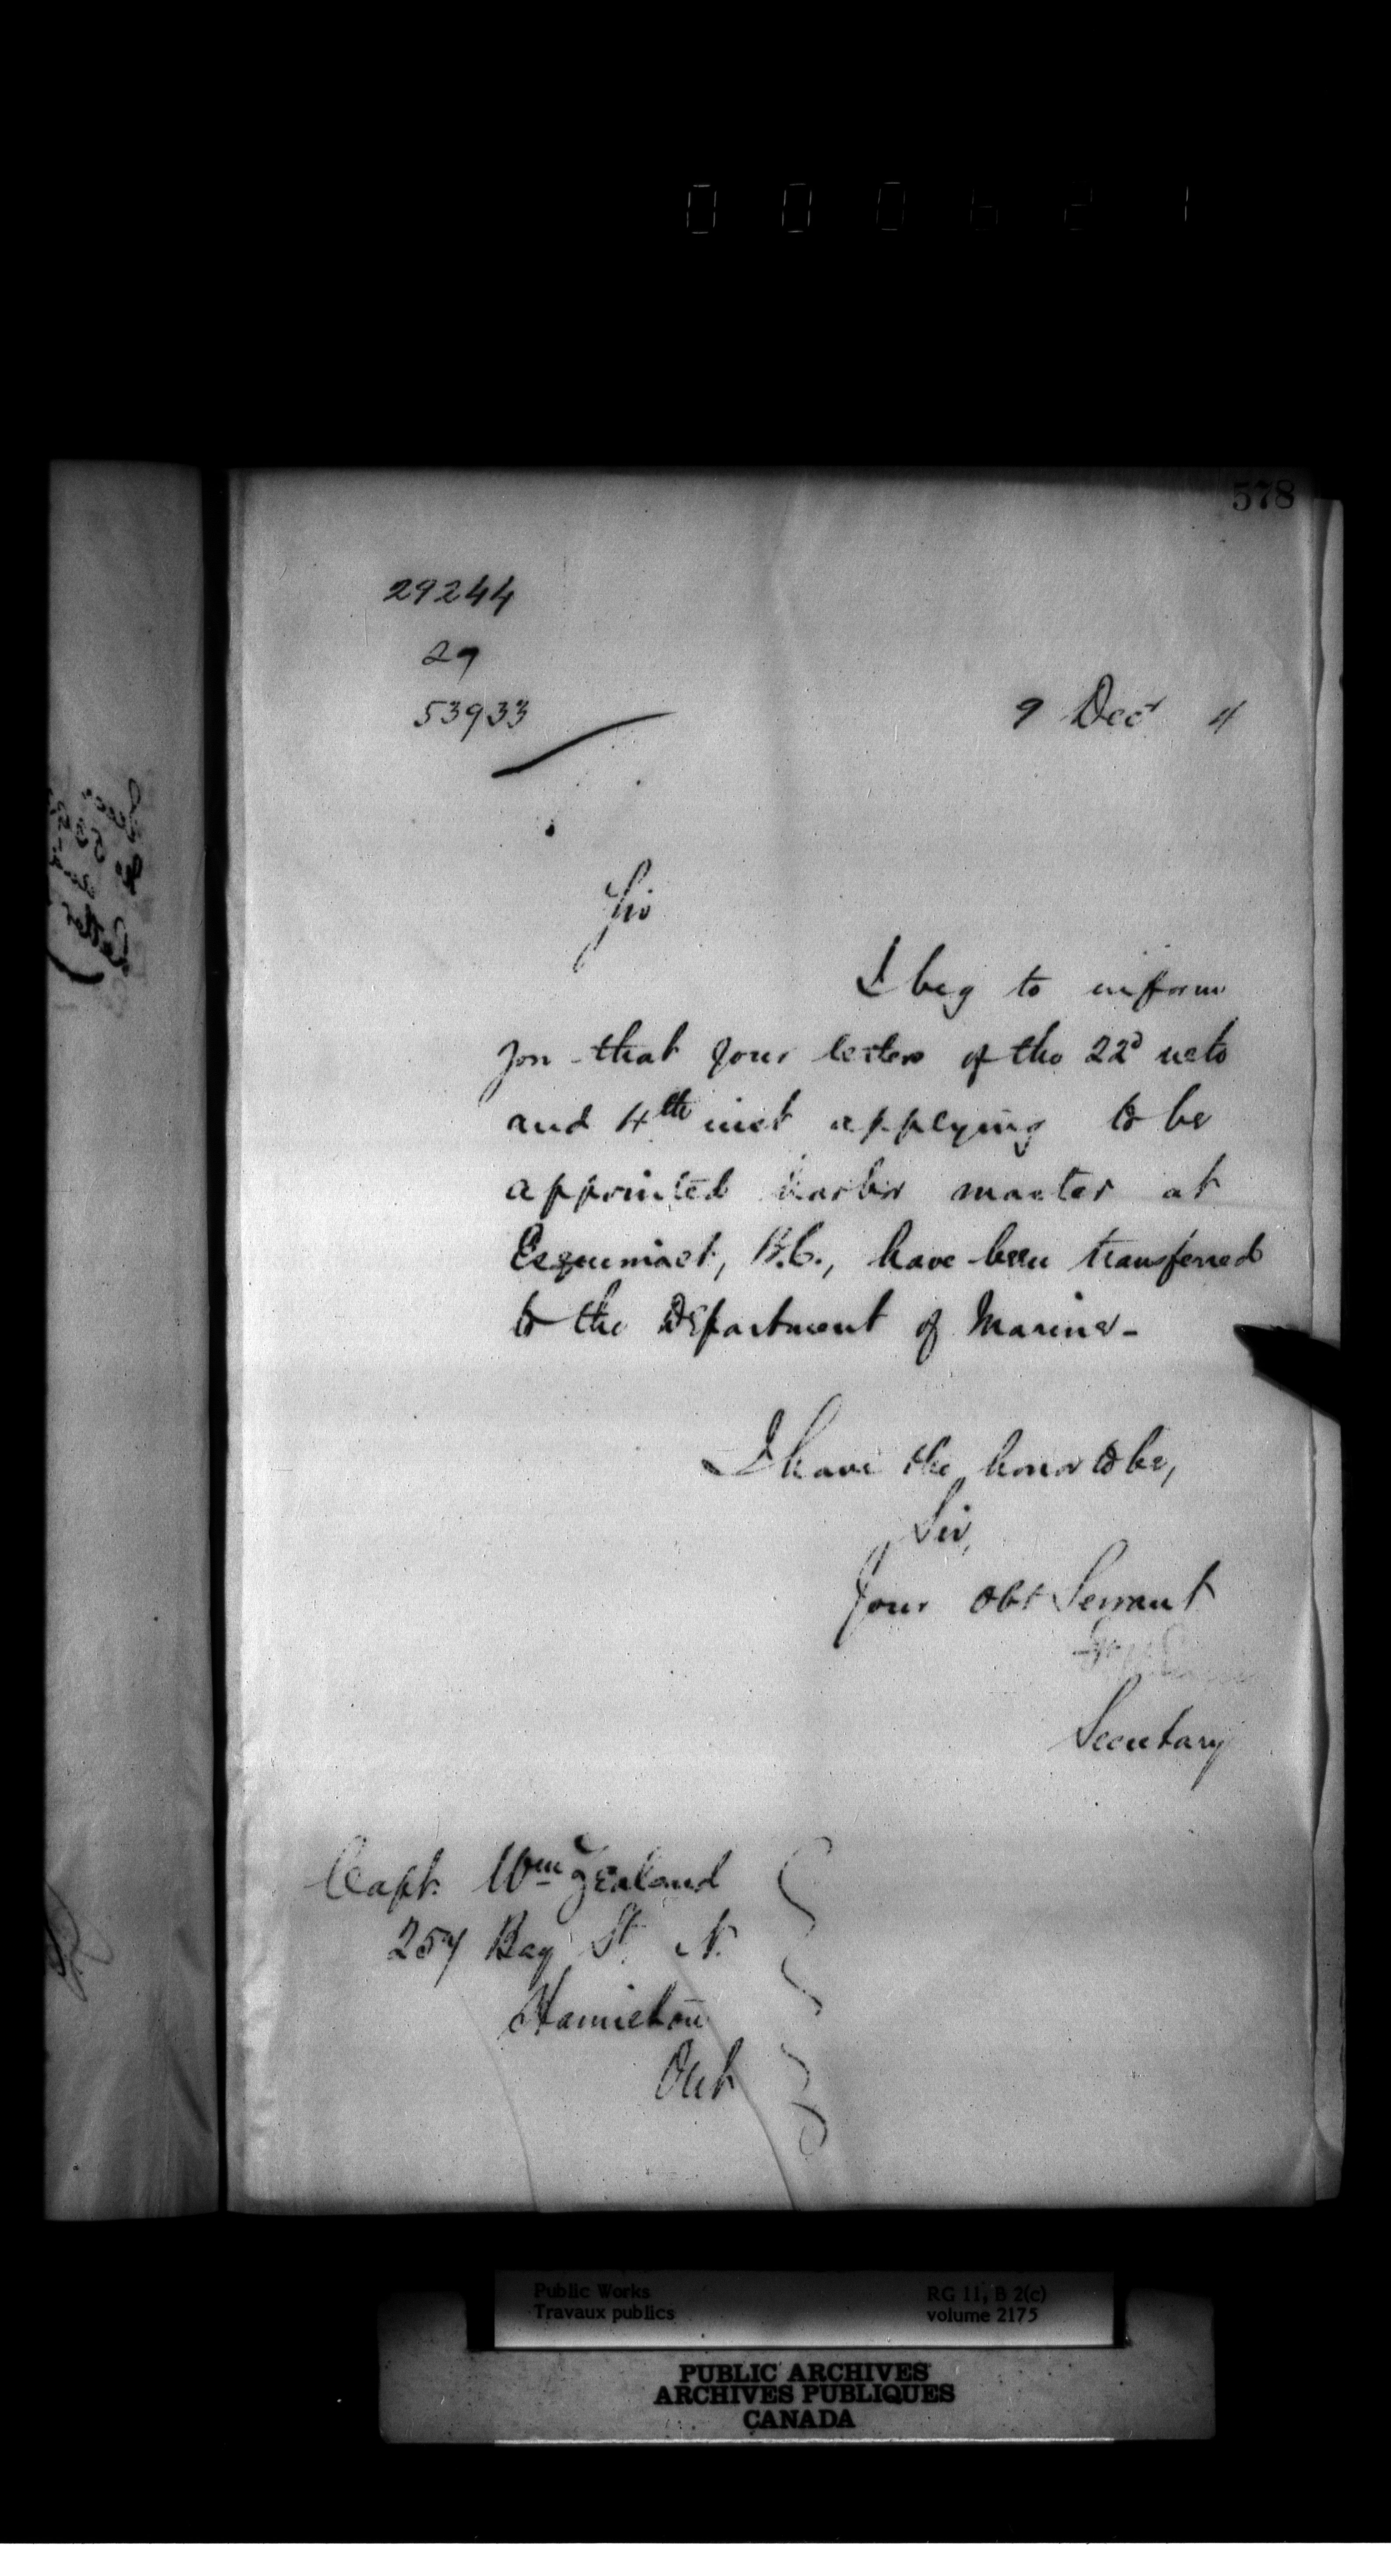 000621
578
29244
29
53933
9 Decr 4
Sir
I beg to inform
you that your letters of the 22d ulto
and 4th inst applying to be
appointed harbor master at
Esquimalt, B.C., have been transferred
to the Department of Marine-
I have the honor to be,
Sir,
Your Obt Servant
Secretary
Capt. Wm Zealand
257 Bay St. N.
Hamilton
Ont
Public Works
Travaux publics
RG 11, B 2(c)
volume 2175
PUBLIC ARCHIVES
ARCHIVES PUBLIQUES
CANADA